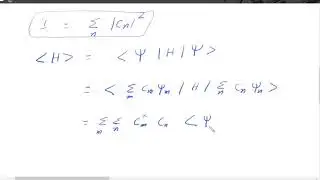 1 = Σ_n |c_n|²
<H> = <Ψ|H|Ψ>
= <Σ_m c_m ψ_m | H | Σ_n c_n ψ_n>
= Σ_m Σ_n c_m^* c_n <ψ